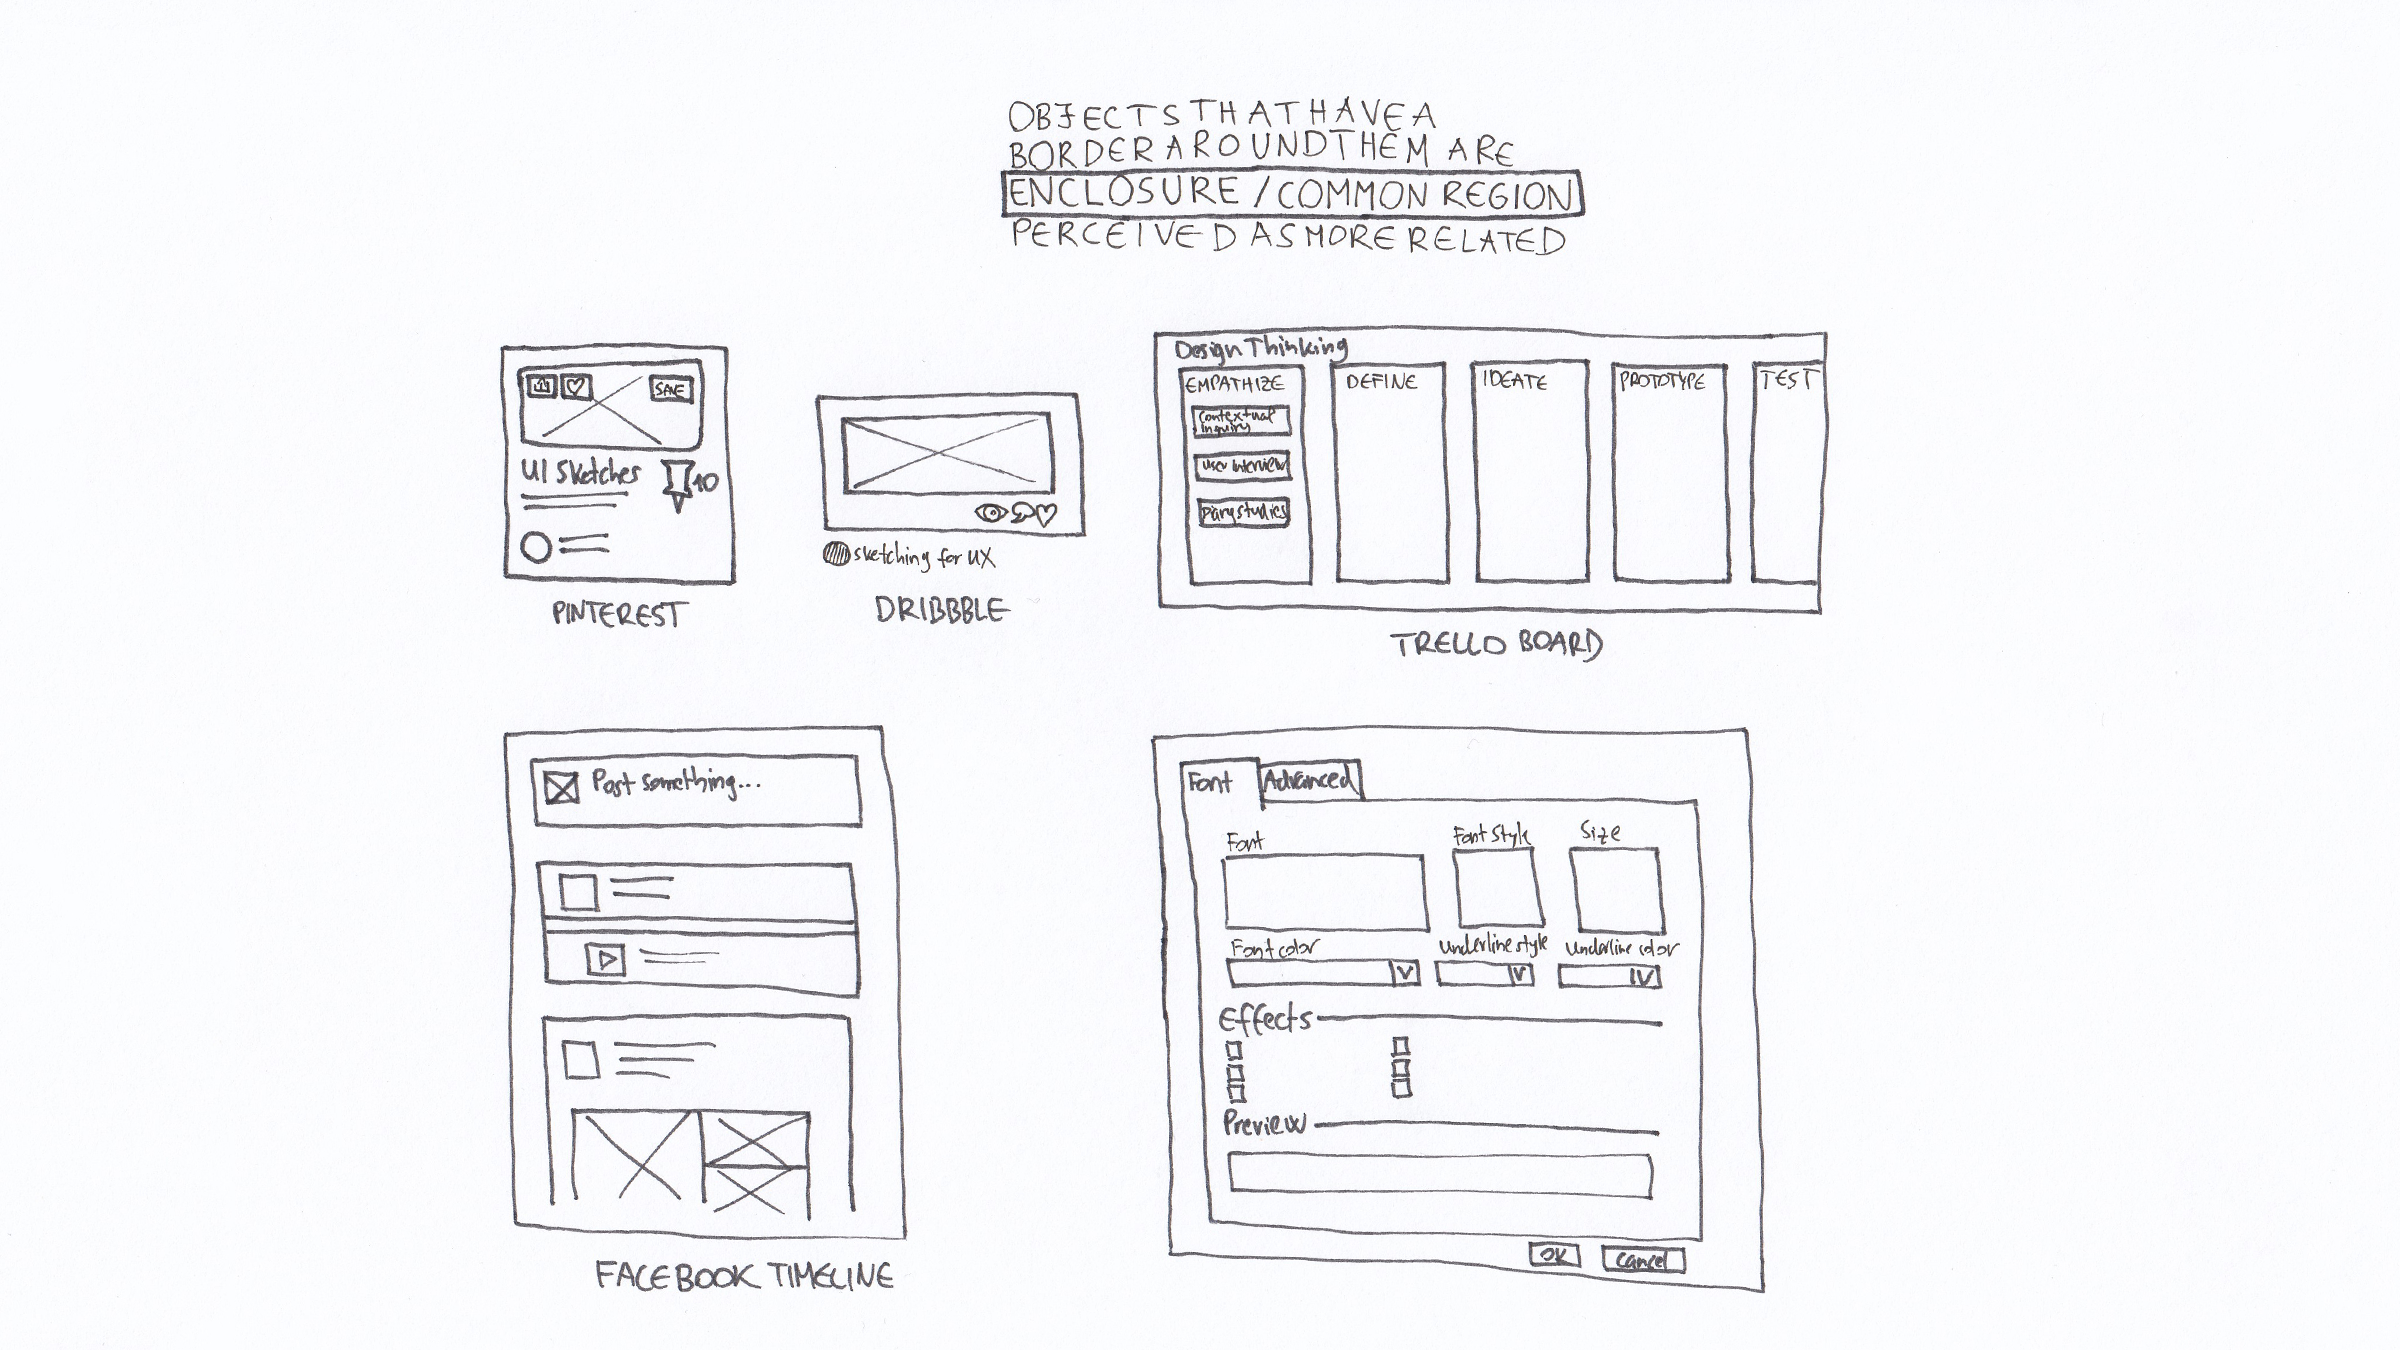 OBJECTS THAT HAVE A
BORDER AROUND THEM ARE
ENCLOSURE / COMMON REGION
PERCEIVED AS MORE RELATED
SAVE
UI Sketches
10
PINTEREST
sketching for UX
DRIBBBLE
Design Thinking
EMPATHIZE
DEFINE
IDEATE
PROTOTYPE
TEST
Contextual
inquiry
user interview
Diary studies
TRELLO BOARD
Post something...
FACEBOOK TIMELINE
Font
Advanced
Font
Font Style
Size
Font color
underline style
underline color
Effects
Preview
OK
Cancel